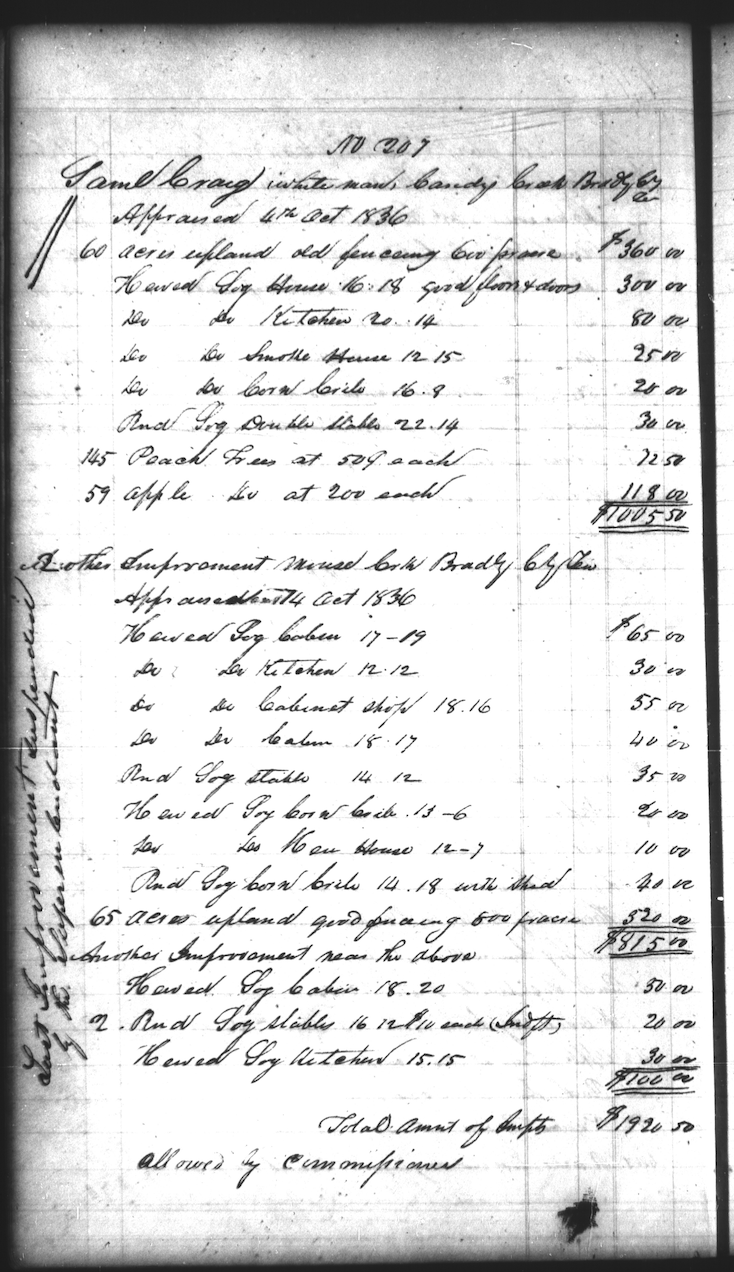 No 207
Saml Craig (white man) Candys Creek Bradly Cty Ten
Appraised 4th Oct 1836
60 acres upland old fenceing 600 pr acre $360 00
Hewed Log House 16.18 good floors & doors 300 00
Do Do Kitchen 20.14 80 00
Do Do Smoke House 12 15 25 00
Do Do Corn Crib 16.8 20 00
Rnd Log Double stables 22.14 30 00
145 Peach Trees at 50¢ each 72 50
59 apple Do at 200 each 118 00
$1005 50
Another Improvement Mouse Crk Bradly Cty Ten
Appraised 4 Oct 1836
Hewed Log Cabin 17-19 $65 00
Do Do Kitchen 12.12 30 00
Do Do Cabinet shop 18.16 55 00
Do Do Cabin 18.17 40 00
Rnd Log stable 14 12 35 00
Hewed Log Corn Crib 13-6 20 00
Do Do Hen House 12-7 10 00
Rnd Log Corn Crib 14.18 with shed 40 00
65 acres upland good fenceing 800 pr acre 520 00
$815 00
Another Improvement near the above
Hewed Log Cabin 18.20 50 00
2 Rnd Log stables 16 12 $10 each 20 00
Hewed Log Kitchen 15.15 30 00
$100 00
Total Amnt of Impts $1920 50
allowed by commissioner
Last Improvement suspended
by the Superintendant